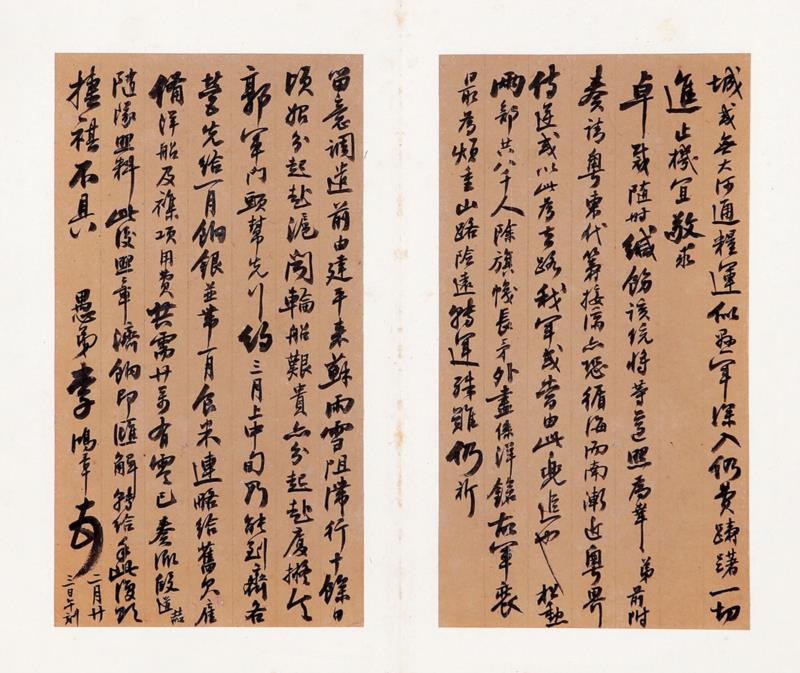 城或無大河通糧運似孤軍深入仍費躊躇一切
進止機宜敬求
卓裁隨時緘飭該統將等遵照為幸弟前附
奏請粵東代籌接濟亦恐循海而南漸近粵界
侍逆或以此為去路我軍或當由此兜追也松勳
兩部共八千人除旗幟長矛外盡係洋鎗故軍裝
最為煩重山路險遠轉運殊難仍祈
留意調遣前由建平來蘇雨雪阻滯行十餘日
頃始分起赴滬閩輪船艱貴亦分起赴廈擬令
郭軍門頭幫先行約三月上中旬乃能到齊各
營先給一月餉銀並帶一月食米連略給舊欠雇
備洋船及雜項用費共需廿萬有零已奏派段道喆
隨隊照料此後照章濟餉即匯解轉給手此復頌
捷祺不具 愚弟李鴻章
二月廿
三日午刻